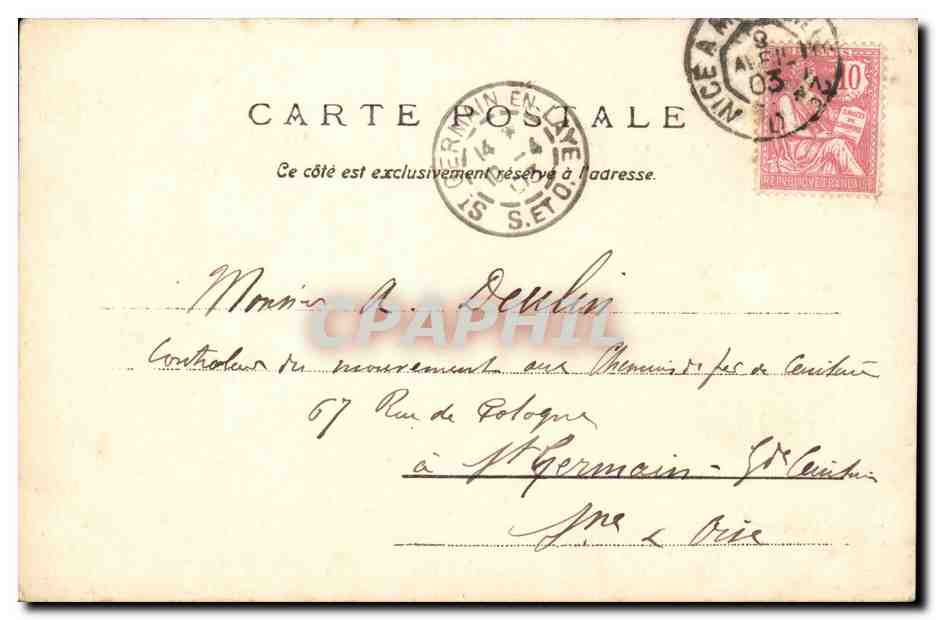 CARTE POSTALE
Ce côté est exclusivement réservé à l'adresse.
NICE A M
8
AVRIL
03
10
REPUBLIQUE FRANCAISE
ST GERMAIN-EN-LAYE
14
10 -4
03
S. ET O.
Monsieur A. Deulin
CPAPHIL
Controleur du mouvement aux Chemins de fer de Ceinture
67 Rue de Pologne
à St Germain - Gde Ceinture
Sne & Oise